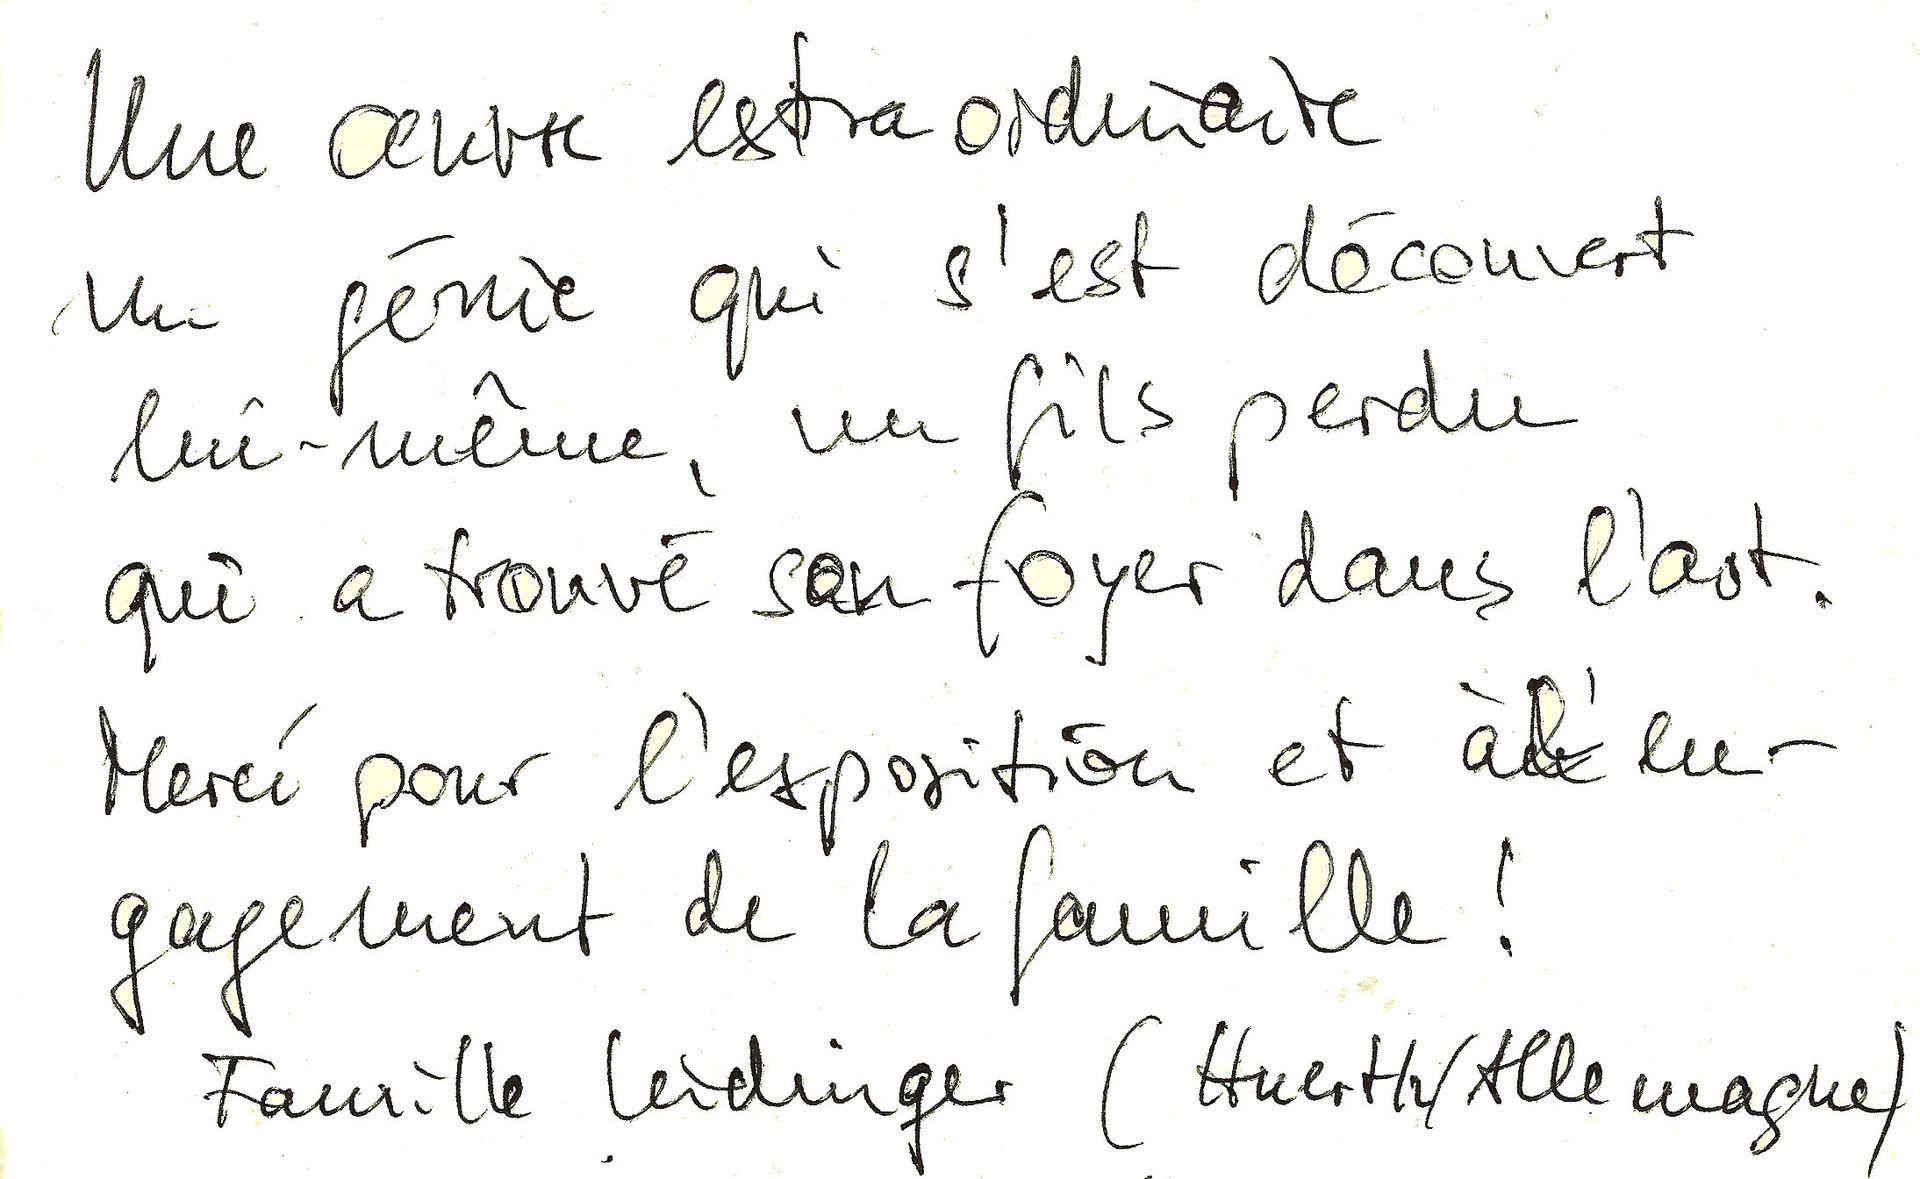 Une œuvre extraordinaire
un génie qui s'est découvert
lui-même, un fils perdu
qui a trouvé son foyer dans l'art.
Merci pour l'exposition et à l'en-
gagement de la famille !
Famille Leidinger (Huerth/Allemagne)